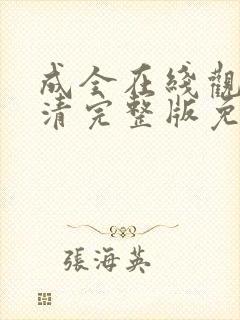 成全在綫觀
清完整版免
張海英